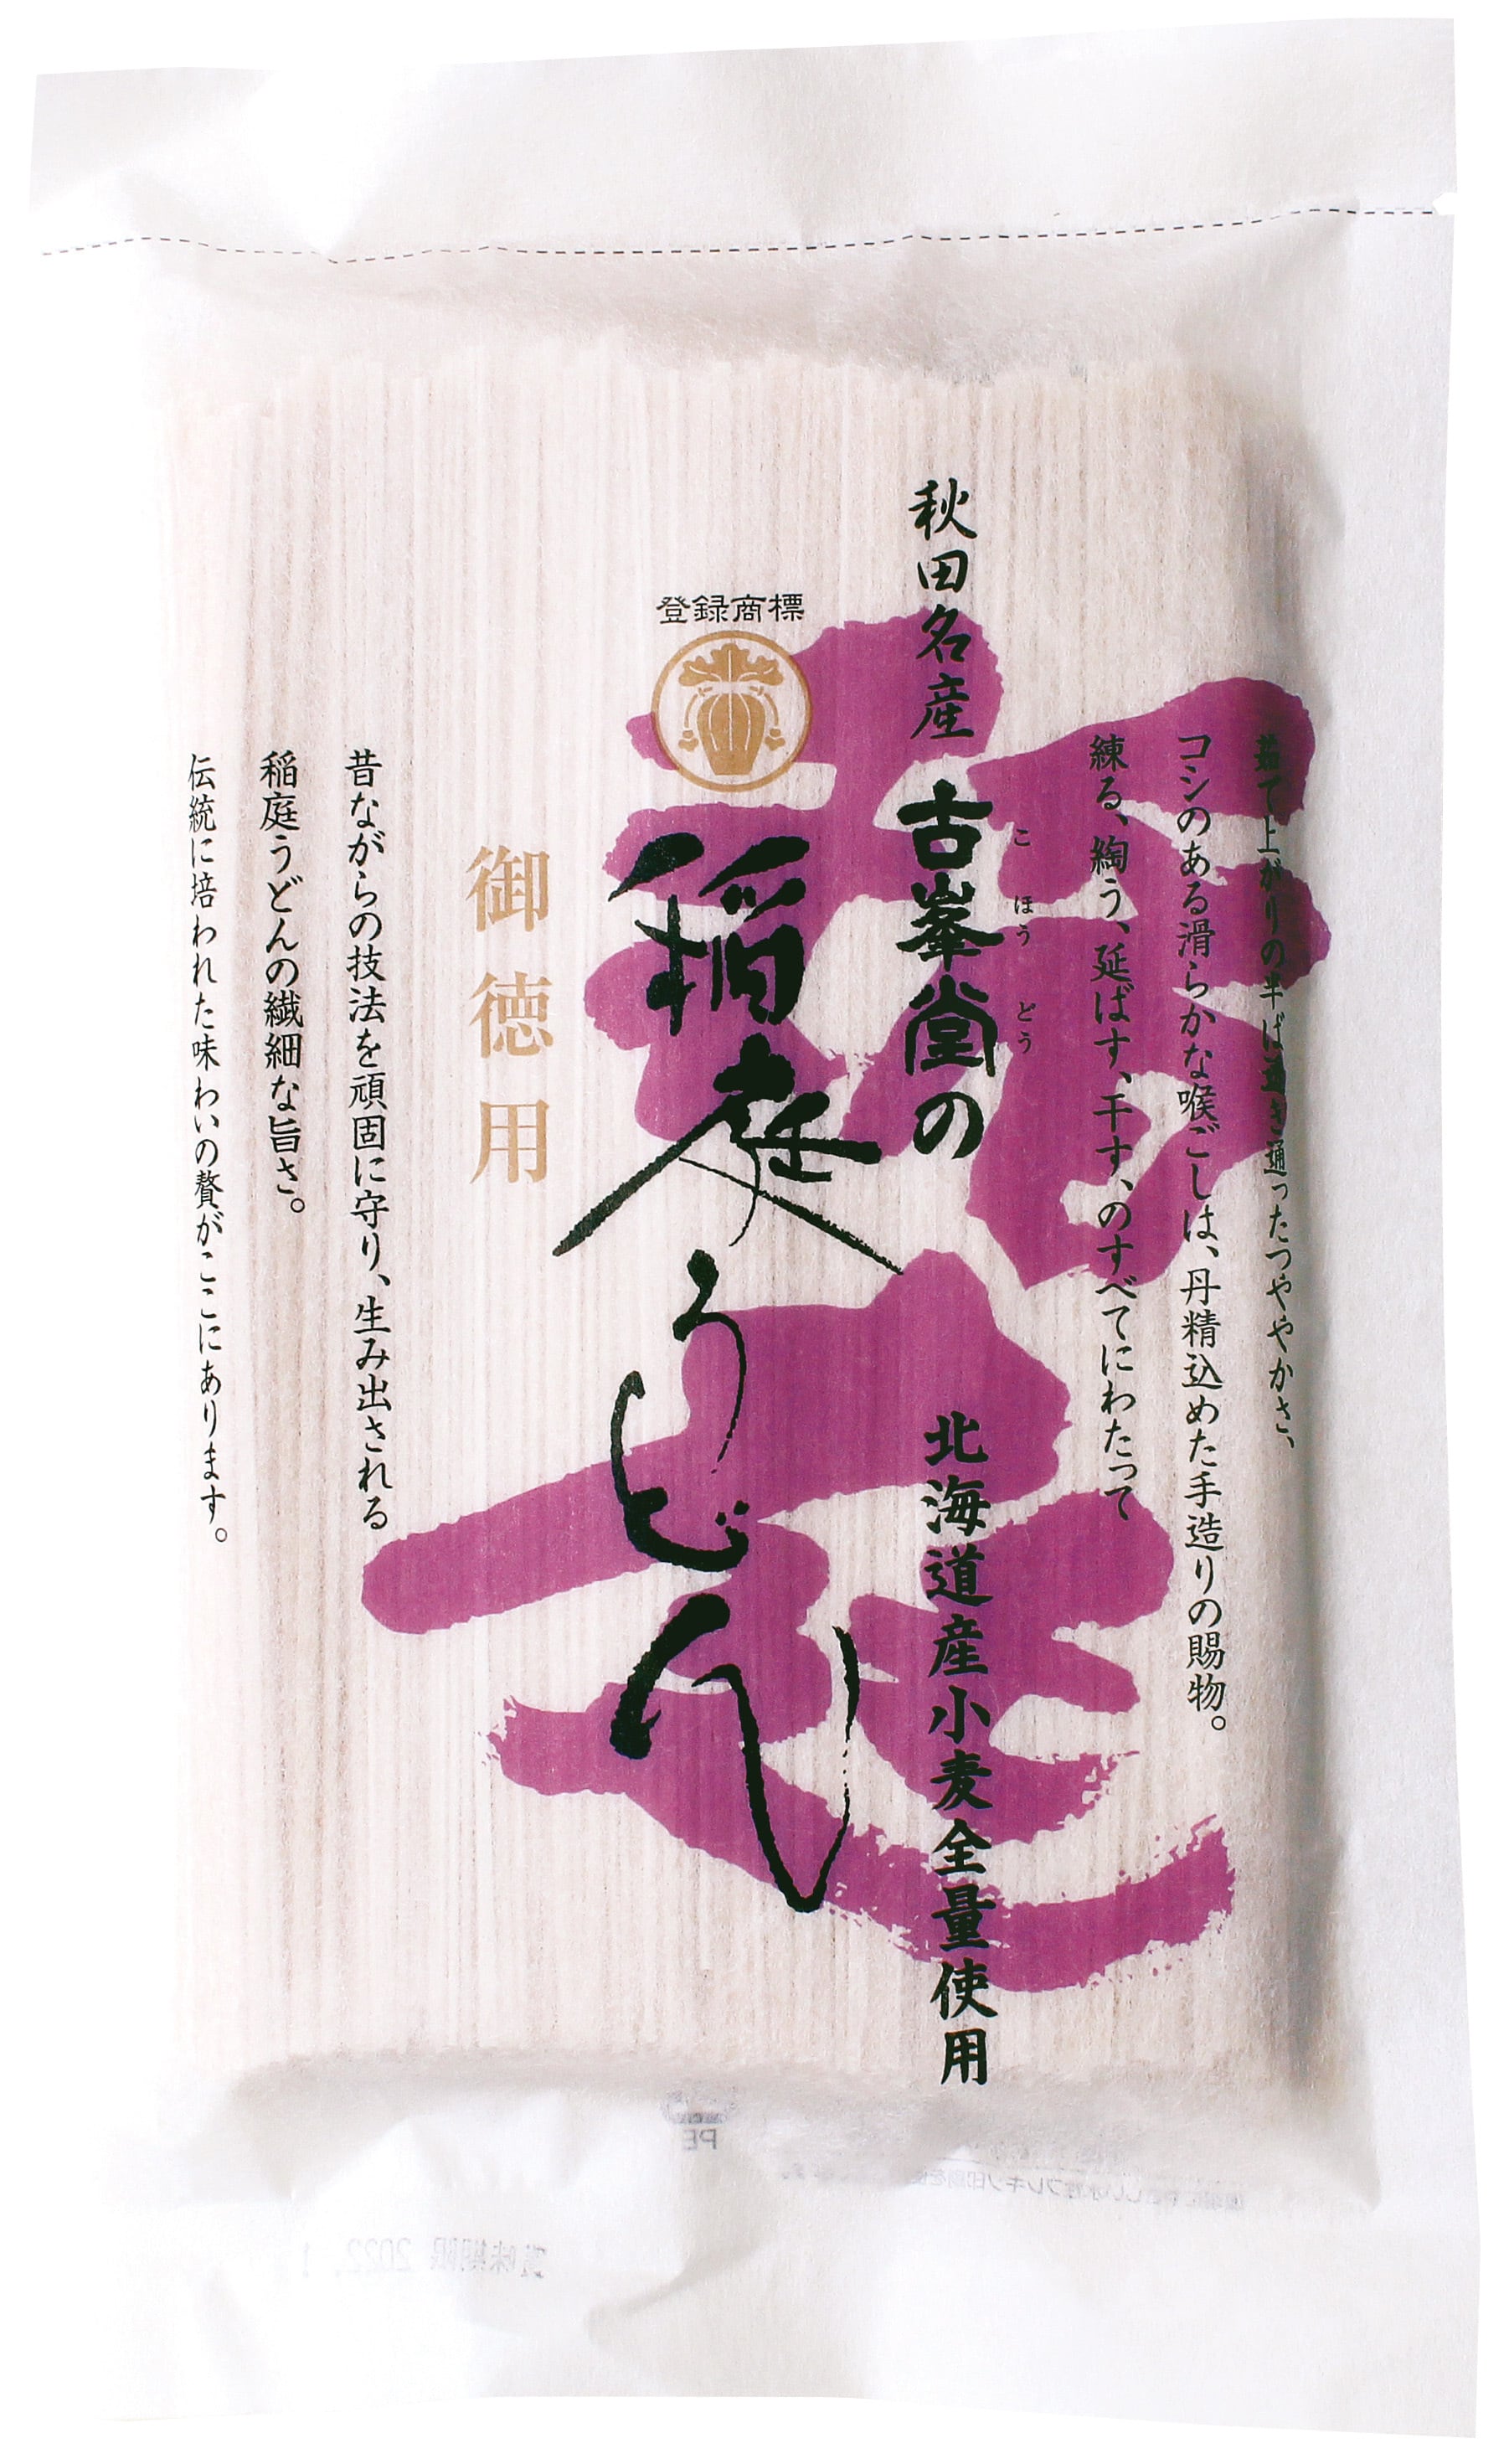 茹で上がりの半ば透き通ったつややかさ、
コシのある滑らかな喉ごしは、丹精込めた手造りの賜物。
練る、綯う、延ばす、干す、のすべてにわたって
秋田名産
古峯堂の
こほうどう
北海道産小麦全量使用
登録商標
稲庭うどん
御徳用
昔ながらの技法を頑固に守り、生み出される
稲庭うどんの繊細な旨さ。
伝統に培われた味わいの贅がここにあります。
PE
賞味期限 2022.1